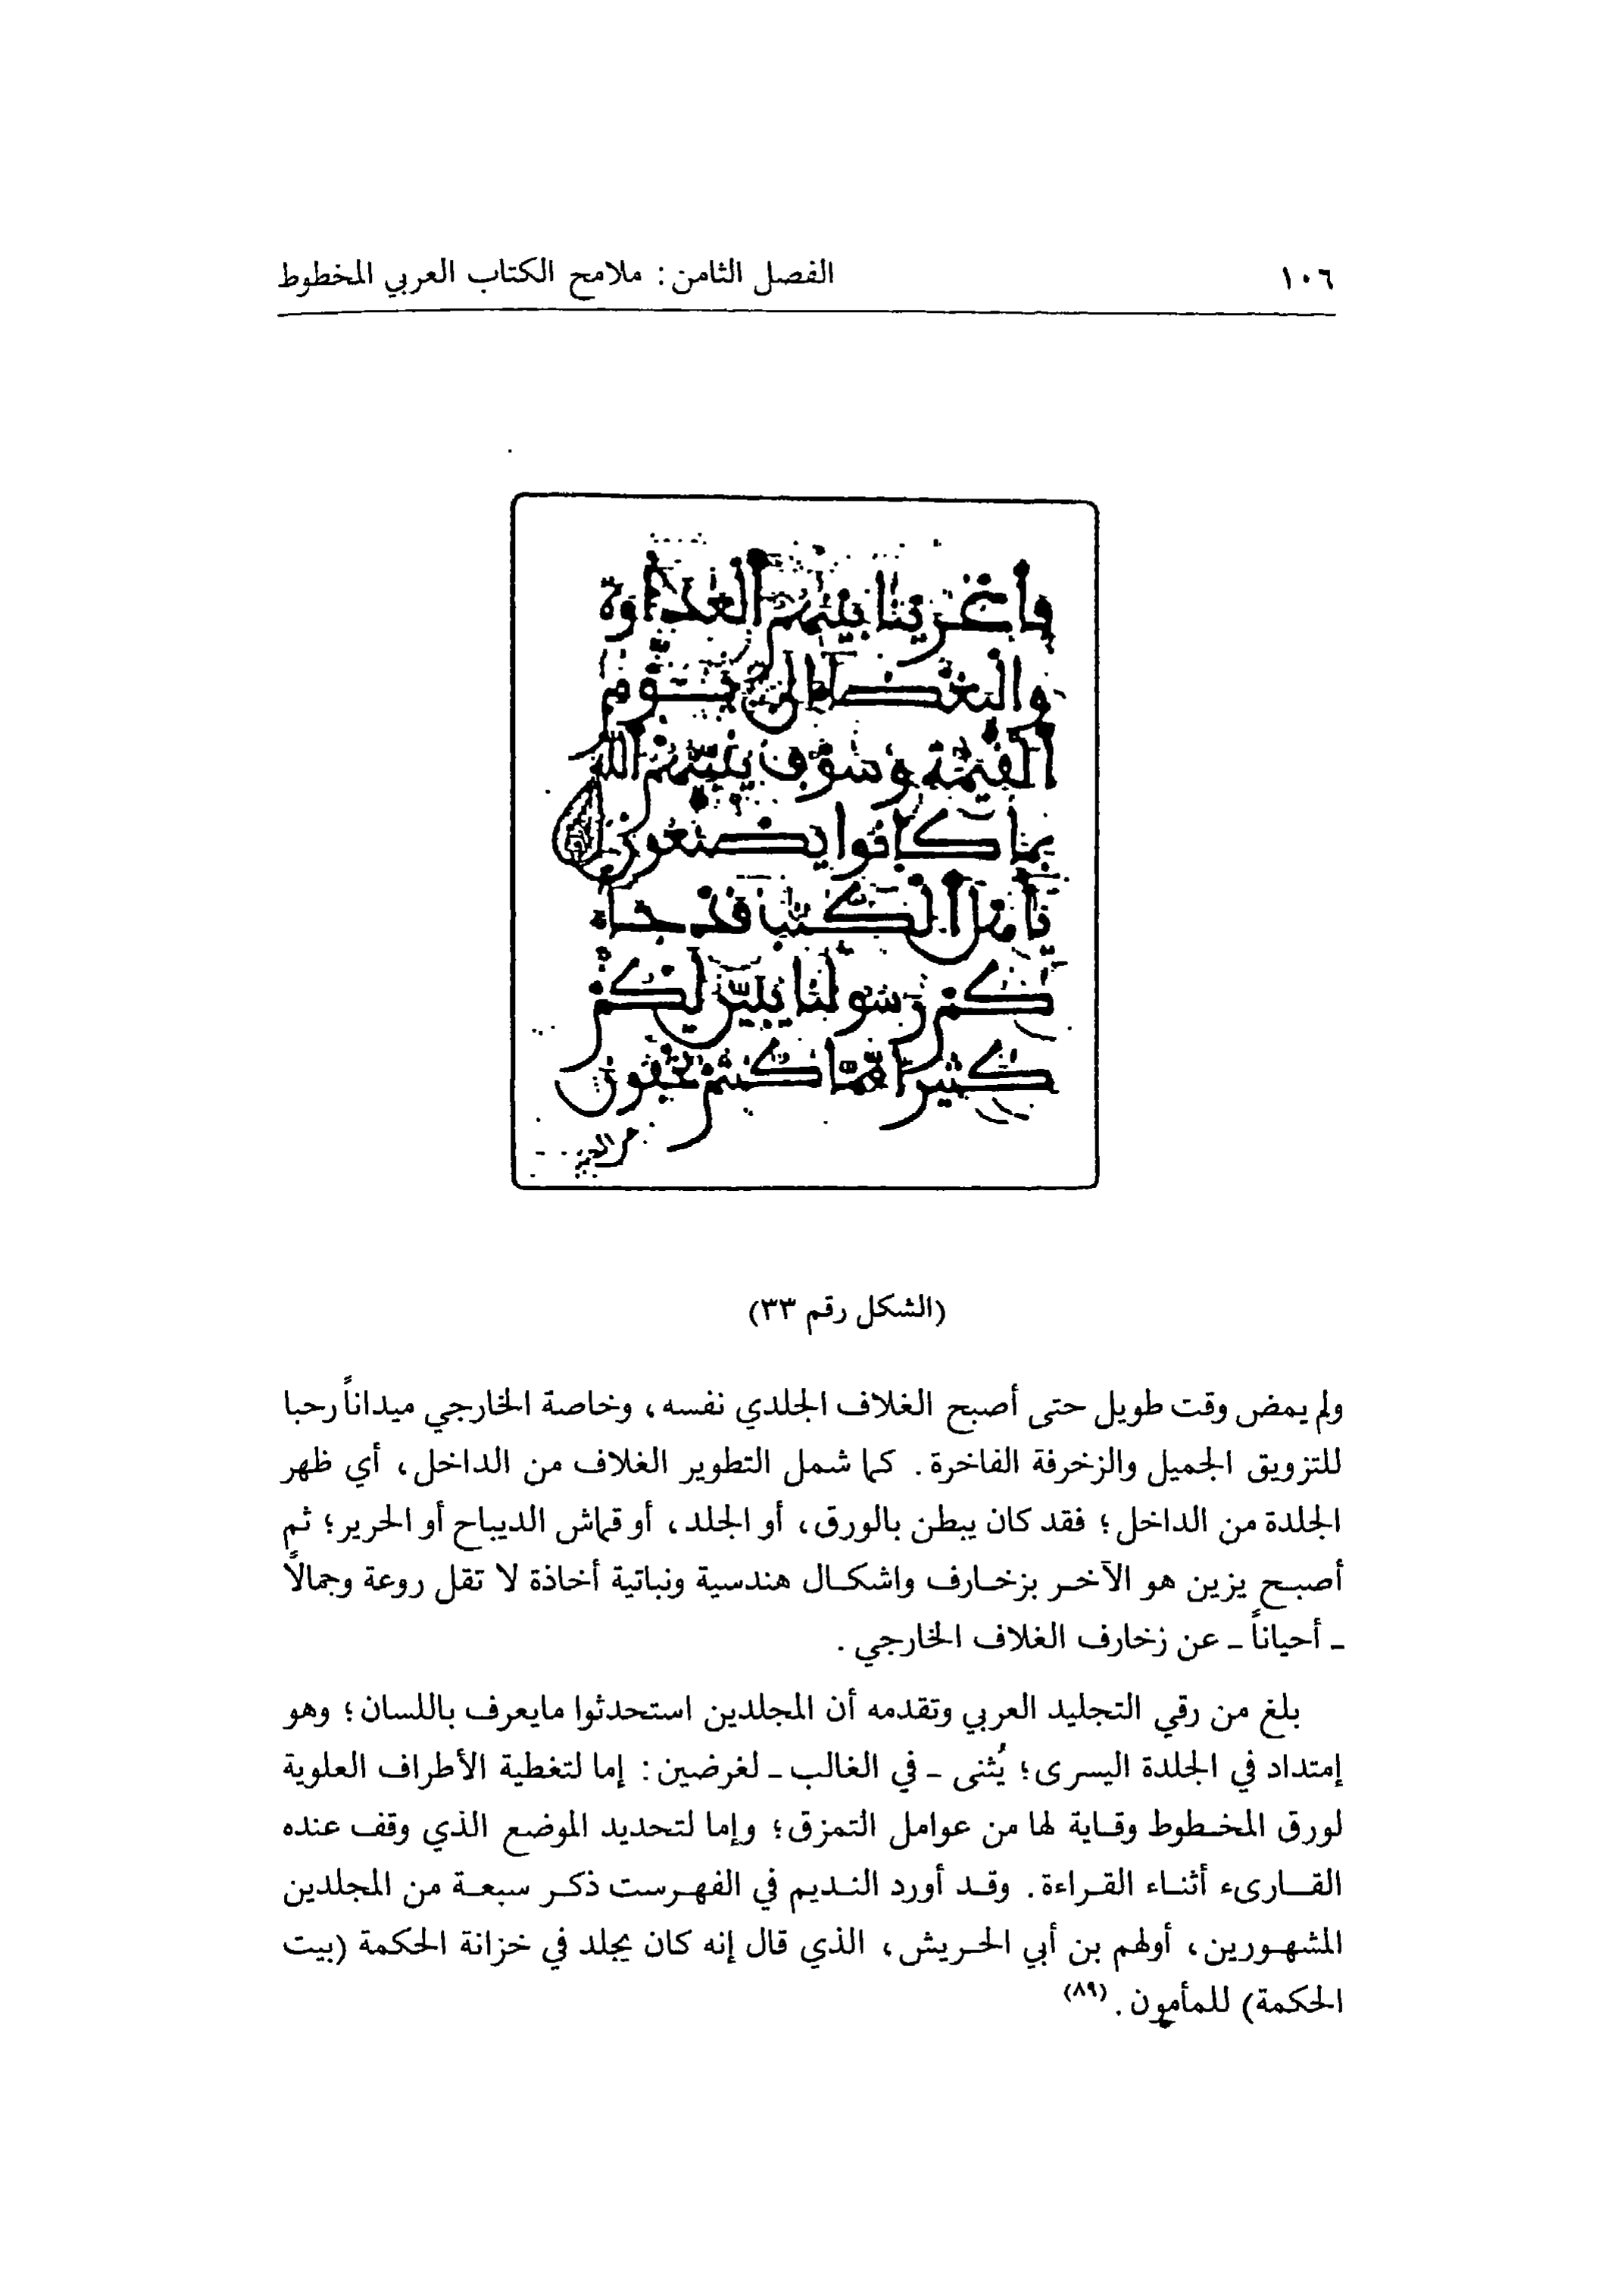 ١٠٦
الفصل الثامن: ملامح الكتاب العربي المخطوط
فأغرينا بينهم العداوة
والبغضاء إلى يوم
القيمة وسوف ينبئهم الله
بما كانوا يصنعون
يأهل الكتب قد جاء
كم رسولنا يبين لكم
كثيرا مما كنتم تخفون
(الشكل رقم ٣٣)
ولم يمض وقت طويل حتى أصبح الغلاف الجلدي نفسه، وخاصة الخارجي ميداناً رحبا
للتزويق الجميل والزخرفة الفاخرة. كما شمل التطوير الغلاف من الداخل، أي ظهر
الجلدة من الداخل؛ فقد كان يبطن بالورق، أو الجلد، أو قماش الديباج أو الحرير؛ ثم
أصبح يزين هو الآخر بزخارف واشكال هندسية ونباتية أخاذة لا تقل روعة وجمالاً
ـ أحياناً ـ عن زخارف الغلاف الخارجي.
بلغ من رقي التجليد العربي وتقدمه أن المجلدين استحدثوا مايعرف باللسان؛ وهو
إمتداد في الجلدة اليسرى؛ يُثنى ـ في الغالب ـ لغرضين: إما لتغطية الأطراف العلوية
لورق المخطوط وقاية لها من عوامل التمزق؛ وإما لتحديد الموضع الذي وقف عنده
القارىء أثناء القراءة. وقد أورد النديم في الفهرست ذكر سبعة من المجلدين
المشهورين، أولهم بن أبي الحريش، الذي قال إنه كان يجلد في خزانة الحكمة (بيت
الحكمة) للمأمون. (٨٩)